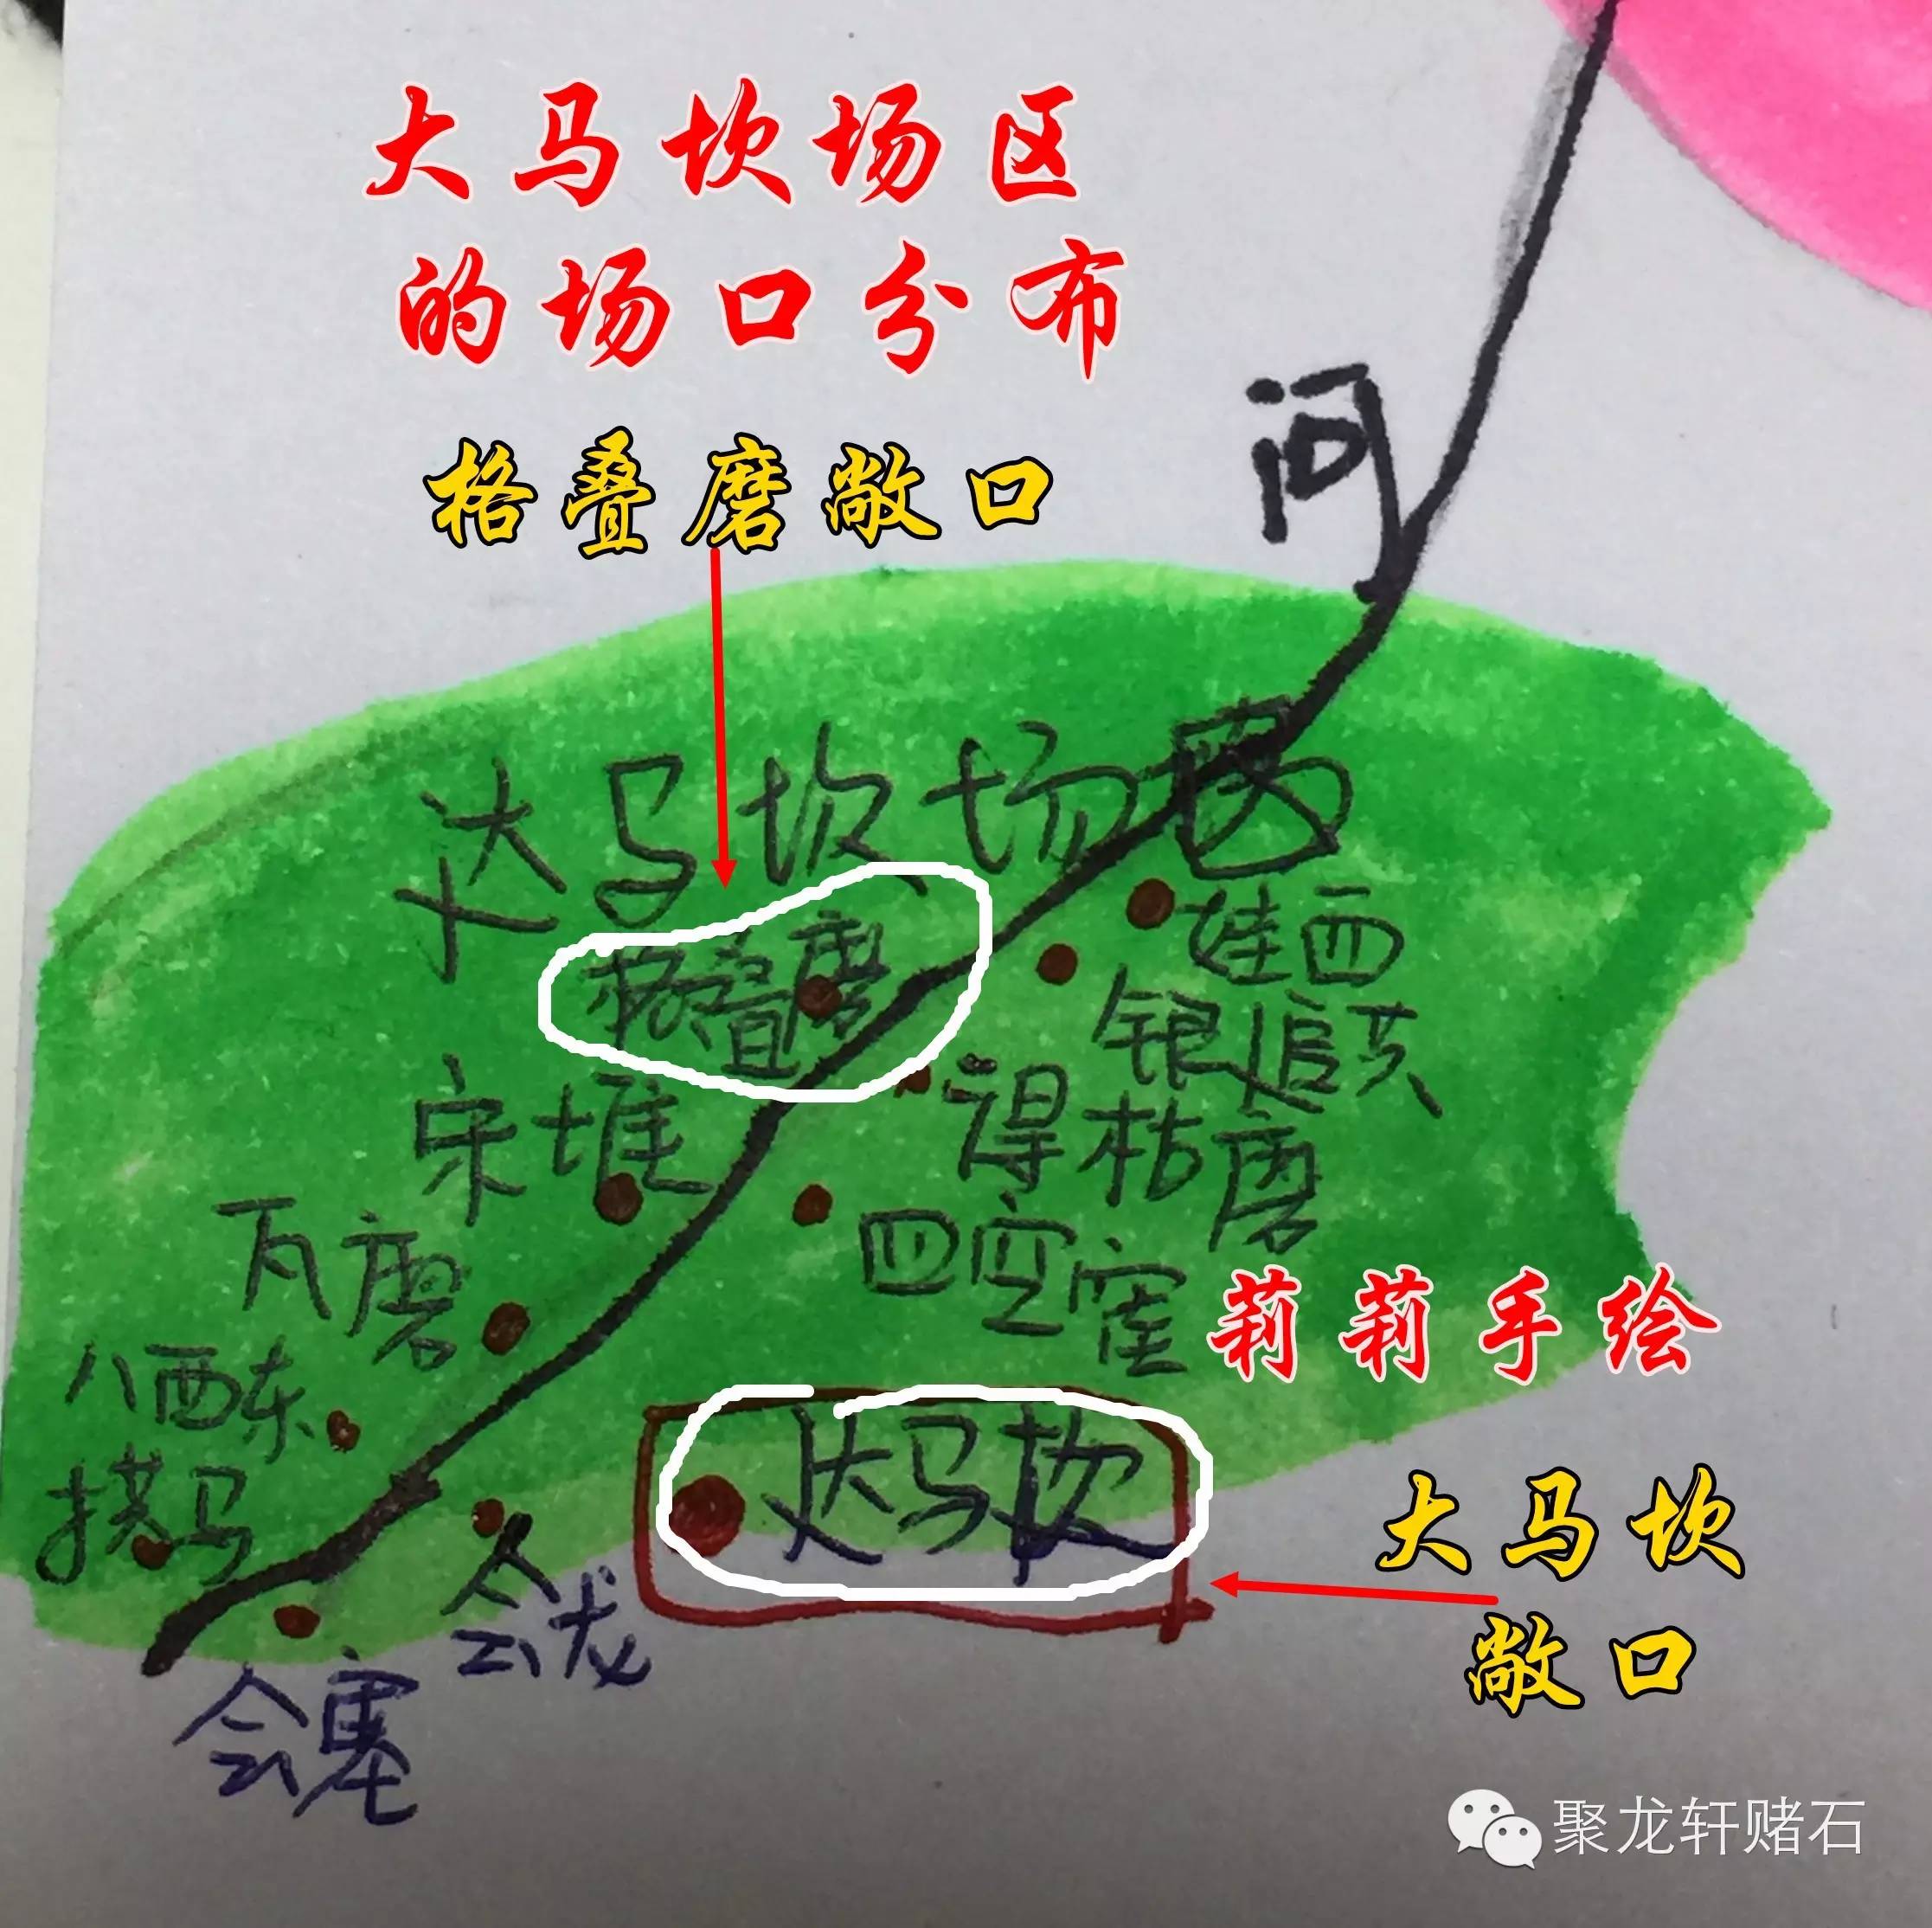 大马坎场区
的场口分布
格叠磨敞口
河
达马坎场区
格叠磨
娃西
银追
宋堆
得枯磨
瓦磨
四空霍
莉莉手绘
八西东
达马坎
大马坎
敞口
马
龙
会
聚龙轩赌石